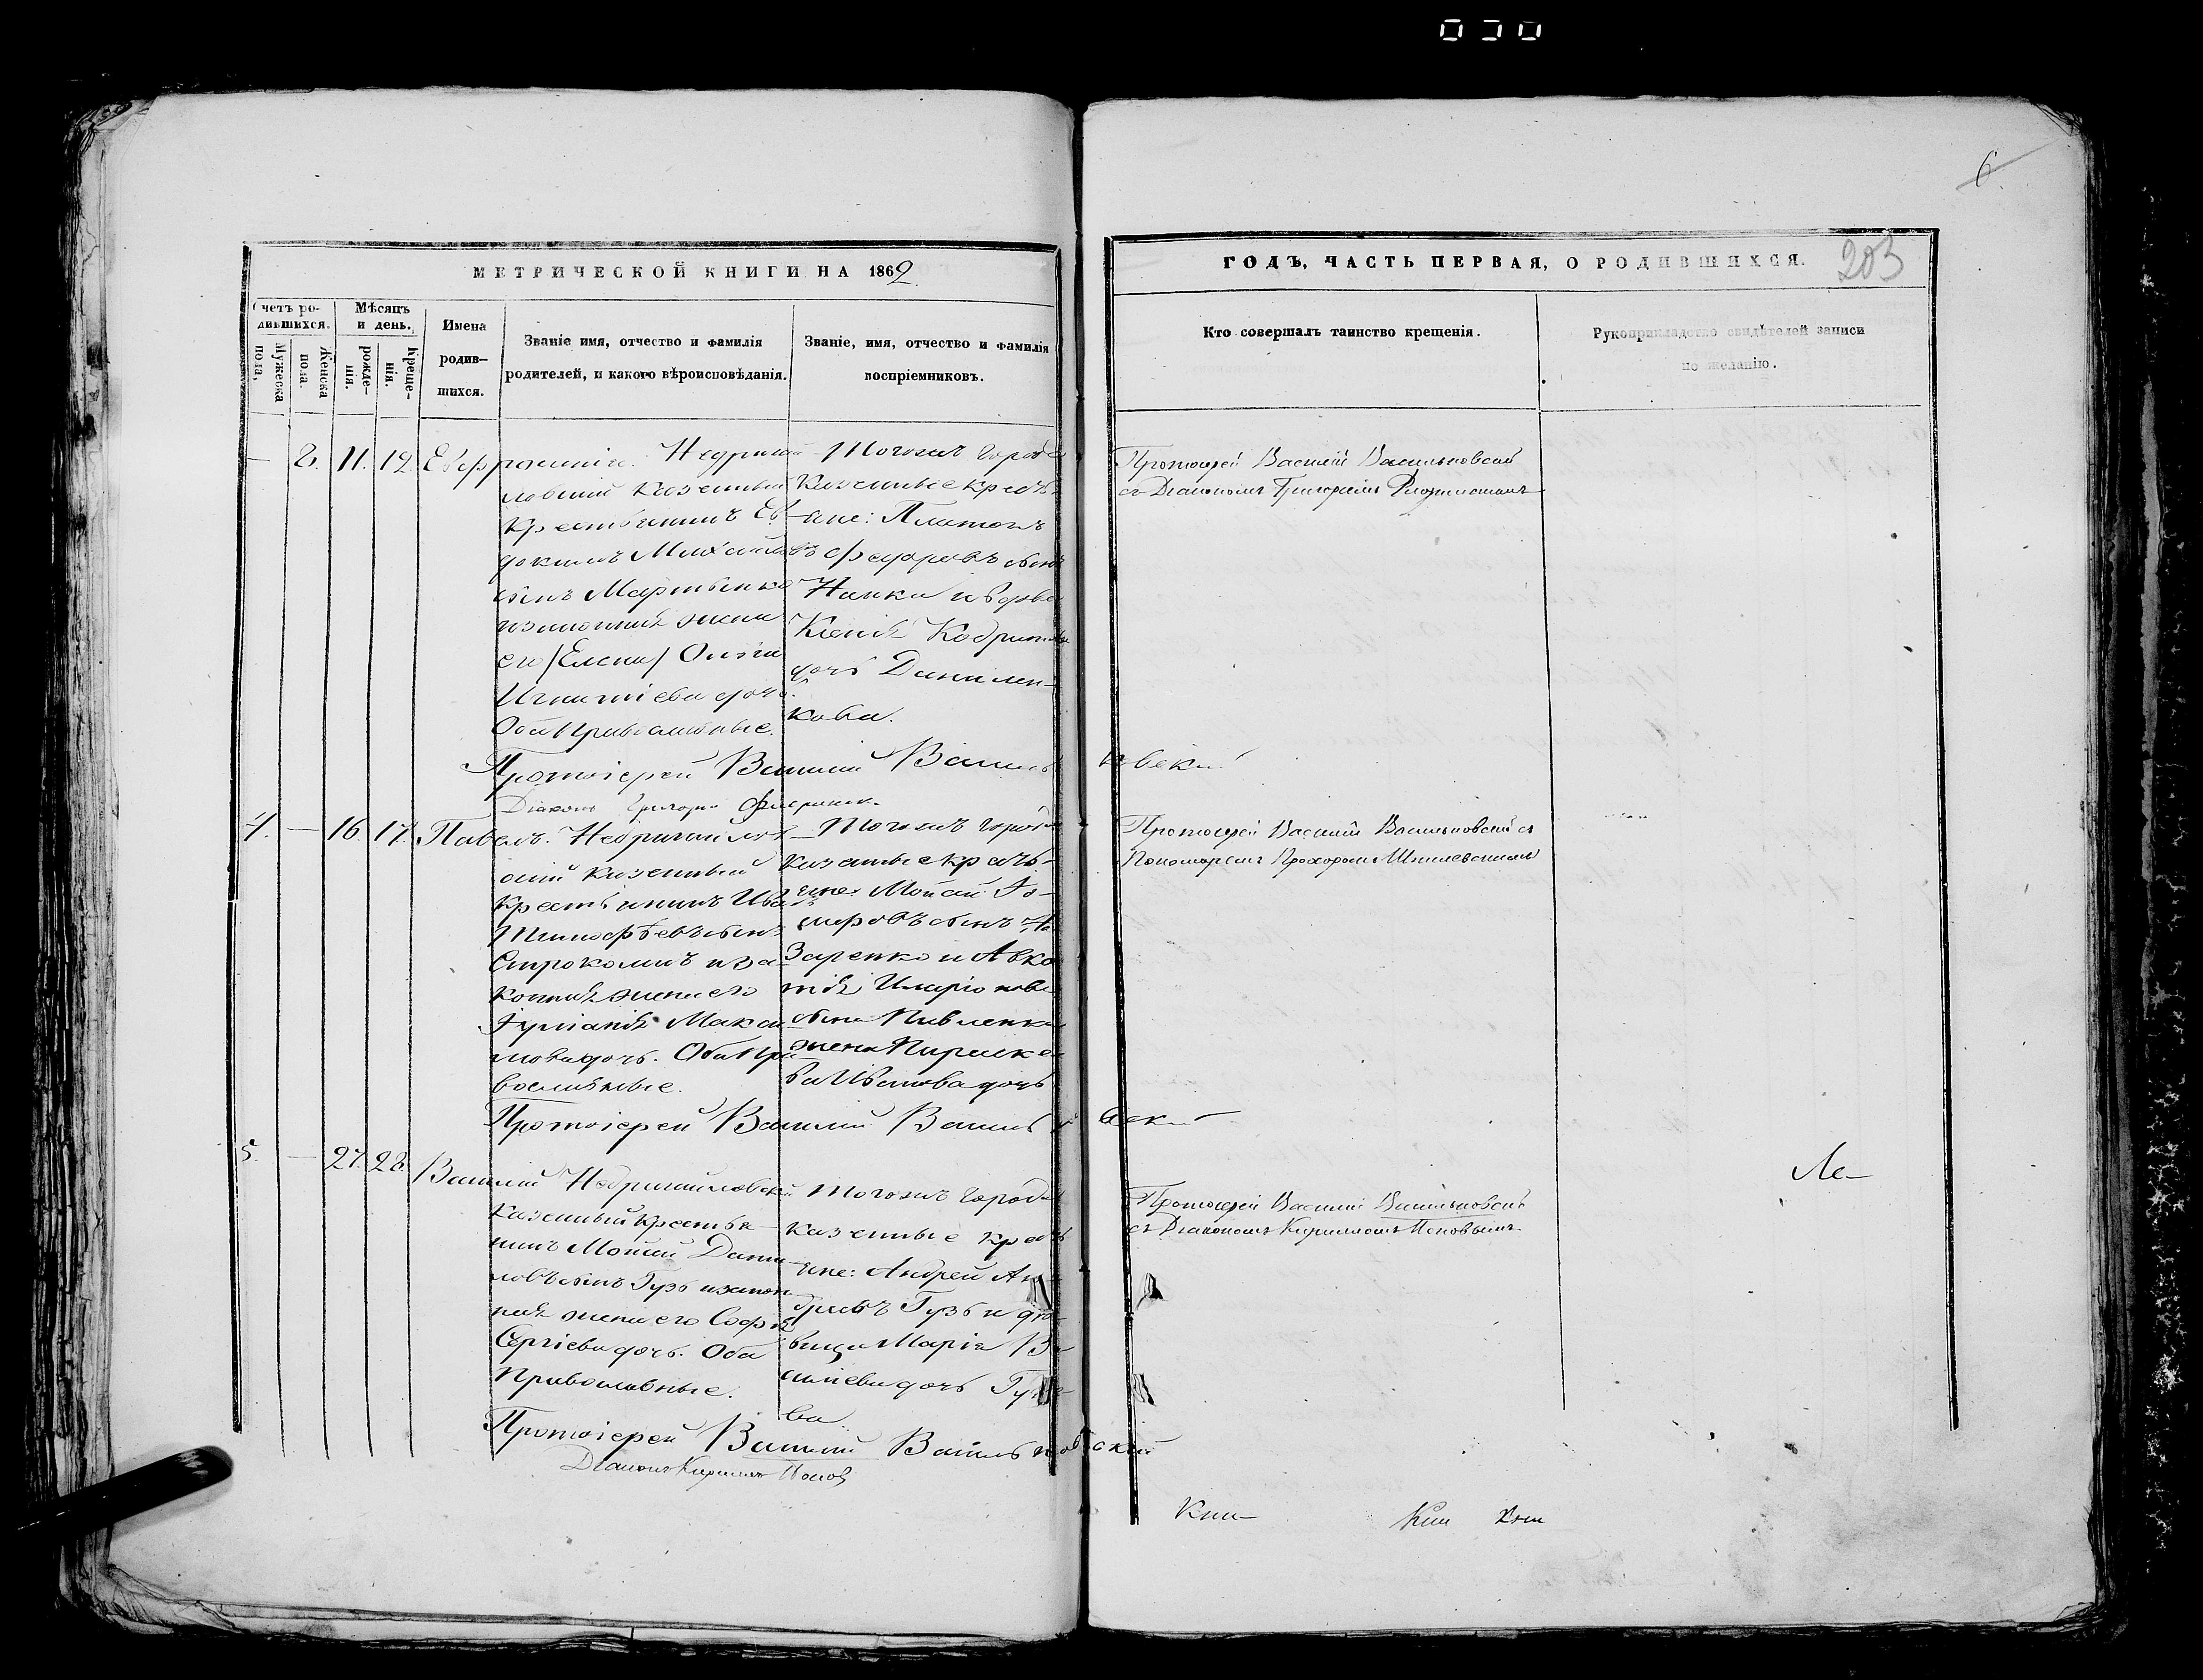 6
МЕТРИЧЕСКОЙ КНИГИ НА 1862
ГОДЪ, ЧАСТЬ ПЕРВАЯ, О РОДИВШИХСЯ.
203
Счетъ родившихся.
Мужеска пола,
Женска пола.
Мѣсяцъ и день.
рожденія.
Крещенія.
Имена родив-
шихся.
Званіе имя, отчество и фамилія
родителей, и какого вѣроисповѣданія.
Званіе, имя, отчество и фамилія
воспріемниковъ.
Кто совершалъ таинство крещенія.
Рукоприкладство свидѣтелей записи
по желанію.
— 2. 11. 12. Евфросинія.
Недригай
ловский казенный
крестьянинъ Ев
докимъ Михайловъ
сынъ Мартыненко
и законная жена
его /Елена/
Игнатіева дочь.
Оба Православные.
Тогожъ города
казенные крестья
не: Платонъ
Федоровъ сынъ
и вдова
Ксенія
дочь Данилен-
кова.
Протоіерей Василій Васильковский
съ Діакономъ Григоріемъ
Протоіерей Василій Васильковскій
Діаконъ Григорій
4. — 16. 17. Павелъ.
Недригайлов
ский казенный
крестьянинъ Иванъ
Тимофѣевъ сынъ
и за-
конная жена его
Іуліанія Макси
мова дочь. Оба Пра
вославные.
Тогожъ города
казенные крестья-
не: Мойсей
сынъ На
заренко и
Иларіонова
сына Павленка
жена Параске
ва Иванова дочь
Протоіерей Василій Васильковскій съ
Пономаремъ Прохоромъ
Протоіерей Василій Васильковскій
5. — 27. 28. Василій
Недригайловскій
казенный крестья-
нинъ Мойсей Дани
ловъ сынъ Гузь и закон
ная жена его Софія
Сергіева дочь. Оба
Православные.
Тогожъ города
казенные крестья
не: Андрей Ан-
дреевъ Гузь и дѣ-
вица Марія Ва
силіева дочь Гузе
ва.
Протоіерей Василій Васильковскій
съ Діакономъ Кирилломъ Поповымъ.
Протоіерей Василій Васильковскій
Діаконъ Кириллъ Поповъ
Ле-
Кни-